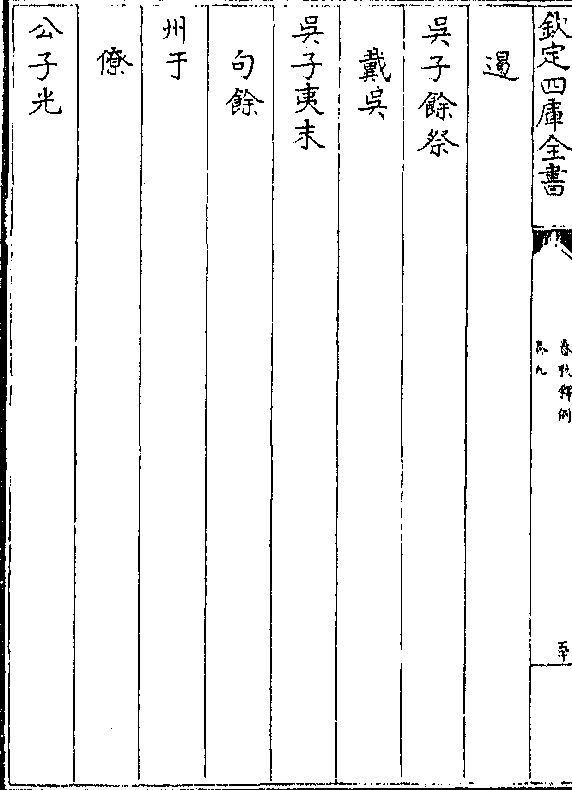 欽定四庫全書
春秋釋例
卷九
遏
吳子餘祭
戴吳
吳子夷末
句餘
州于
僚
公子光